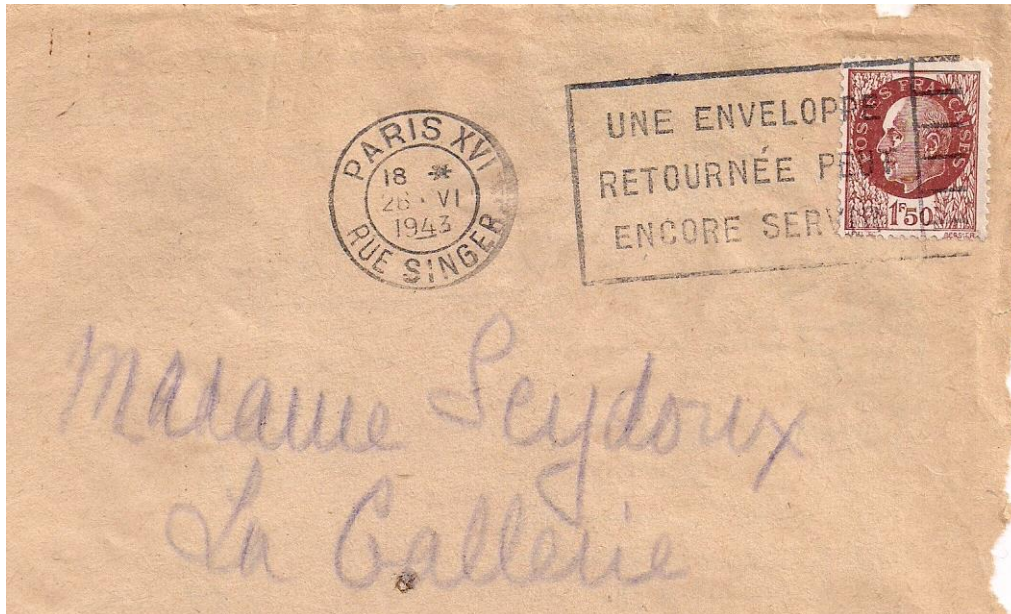 PARIS XVI
18 *
26 · VI
1943
RUE SINGER
UNE ENVELOPPE
RETOURNÉE PEUT
ENCORE SERVIR
POSTES FRANÇAISES
1F50
Madame Seydoux
La Gallerie